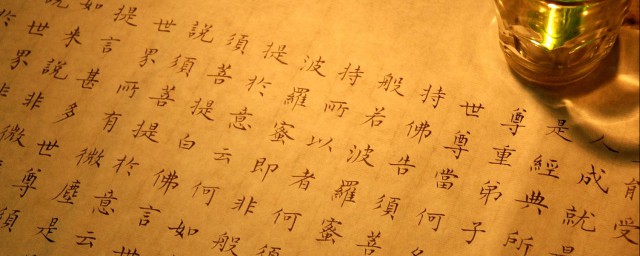 有受
人成就
是經典所
尊重弟子
世尊當何
持佛告須菩
般若波羅蜜
持所以者何須
波羅蜜即非般
提於意云何如
須菩提白佛言世
說須菩提於意云
世界所有微塵是
提言甚多世尊須
如來說非微
世界非
於